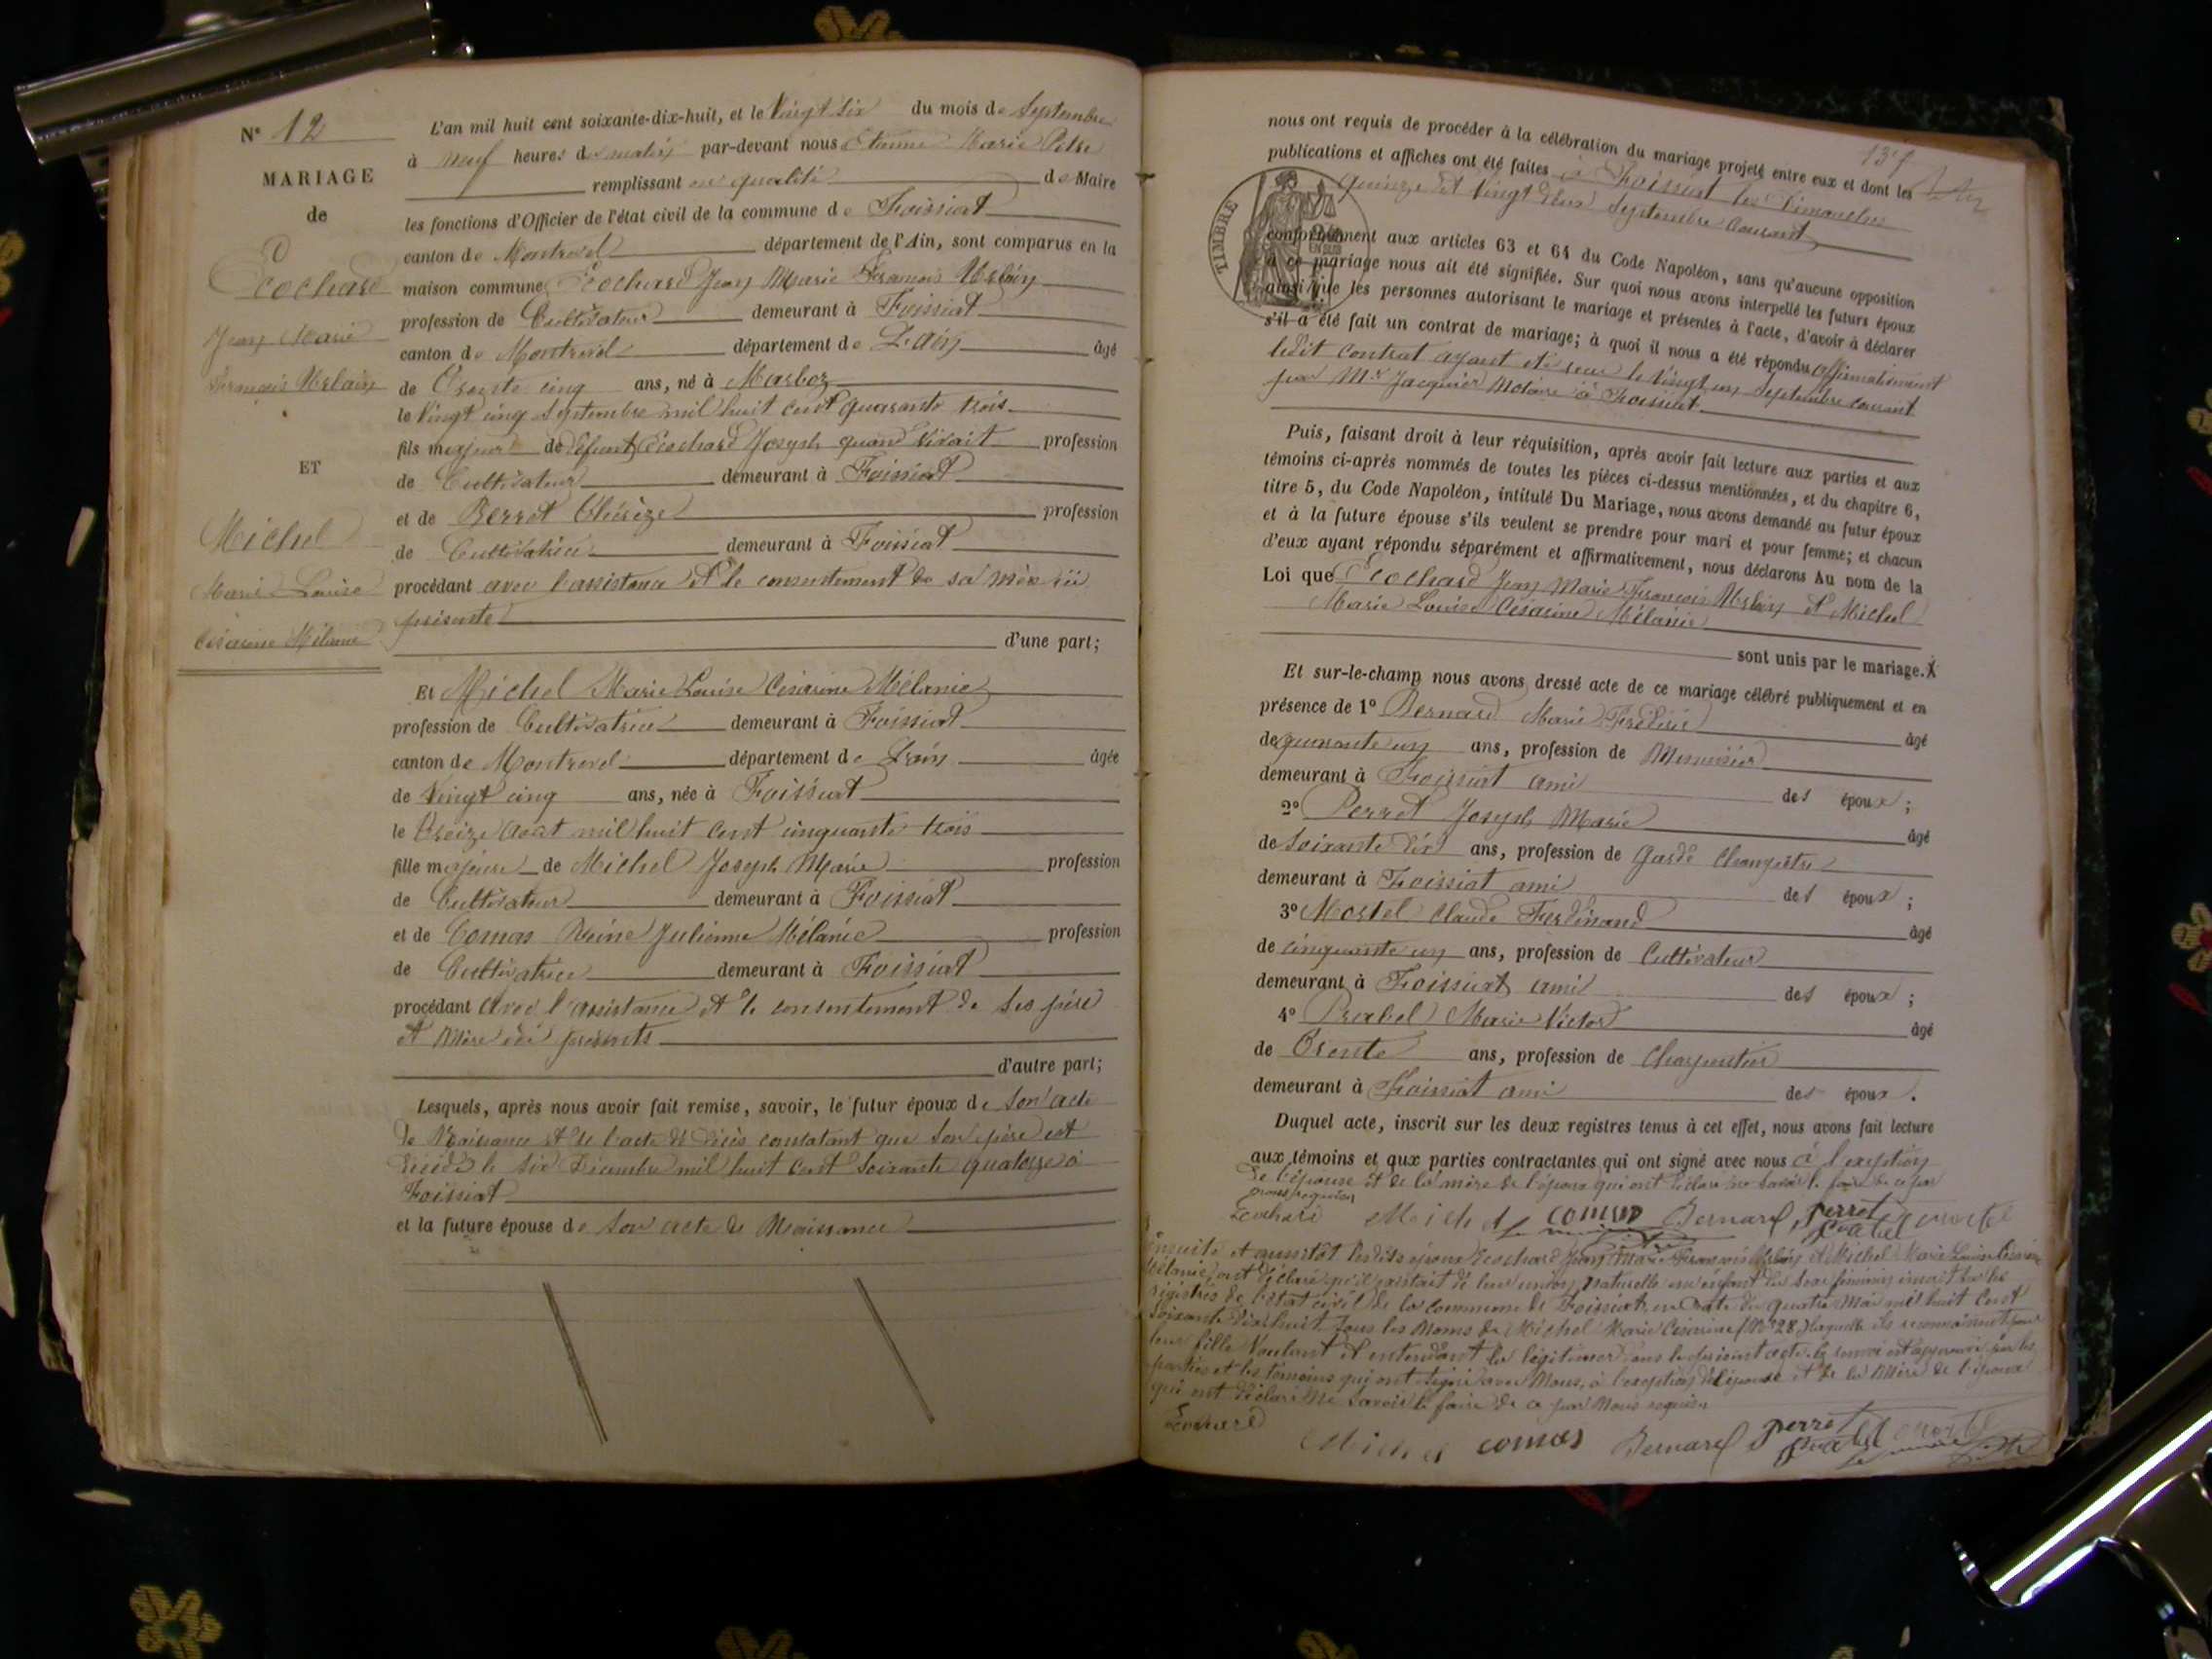 N° 12
MARIAGE
de
Ecochard
Jean Marie
François Urbain
ET
Michel
Marie Louise
Césarine Mélanie
L'an mil huit cent soixante-dix-huit, et le Vingt six du mois de Septembre
à neuf heures du matin par-devant nous Etienne Marie
remplissant en qualité de Maire
les fonctions d'Officier de l'état civil de la commune de Foissiat
canton de Montrevel département de l'Ain, sont comparus en la
maison commune Ecochard Jean Marie François Urbain
profession de Cultivateur demeurant à Foissiat
canton de Montrevel département de L'ain âgé
de Trente cinq ans, né à Marboz
le Vingt cinq Septembre mil huit cent quarante trois
fils majeur de défunt Ecochard Joseph quand vivait profession
de Cultivateur demeurant à Foissiat
et de Perret Thérèze profession
de Cultivatrice demeurant à Foissiat
procédant avec l'assistance et le consentement de sa mère ici
présente
d'une part;
Et Michel Marie Louise Césarine Mélanie
profession de Cultivatrice demeurant à Foissiat
canton de Montrevel département de L'ain âgée
de Vingt cinq ans, née à Foissiat
le Treize août mil huit cent cinquante trois
fille majeure de Michel Joseph Marie profession
de Cultivateur demeurant à Foissiat
et de Comas Reine Julienne Mélanie profession
de Cultivatrice demeurant à Foissiat
procédant avec l'assistance et le consentement de ses père
et mère ici présents
d'autre part;
Lesquels, après nous avoir fait remise, savoir, le futur époux de son acte
de Naissance et de l'acte de décès constatant que son père est
décédé le six Décembre mil huit cent soixante quatorze à
Foissiat
et la future épouse de son acte de Naissance
137
nous ont requis de procéder à la célébration du mariage projeté entre eux et dont les
publications et affiches ont été faites à Foissiat les Dimanches
quinze et vingt deux Septembre courant
TIMBRE
conformément aux articles 63 et 64 du Code Napoléon, sans qu'aucune opposition
à ce mariage nous ait été signifiée. Sur quoi nous avons interpellé les futurs époux
ainsi que les personnes autorisant le mariage et présentes à l'acte, d'avoir à déclarer
s'il a été fait un contrat de mariage; à quoi il nous a été répondu affirmativement
ledit contrat ayant été reçu le vingt un Septembre courant
par Me Jacquier Notaire à Foissiat
Puis, faisant droit à leur réquisition, après avoir fait lecture aux parties et aux
témoins ci-après nommés de toutes les pièces ci-dessus mentionnées, et du chapitre 6,
titre 5, du Code Napoléon, intitulé Du Mariage, nous avons demandé au futur époux
et à la future épouse s'ils veulent se prendre pour mari et pour femme; et chacun
d'eux ayant répondu séparément et affirmativement, nous déclarons Au nom de la
Loi que Ecochard Jean Marie François Urbain et Michel
Marie Louise Césarine Mélanie
sont unis par le mariage. X
Et sur-le-champ nous avons dressé acte de ce mariage célébré publiquement et en
présence de 1° Bernard Marie Frédéric âgé
de quarante un ans, profession de Menuisier
demeurant à Foissiat ami des époux ;
2° Perret Joseph Marie âgé
de soixante dix ans, profession de Garde Champêtre
demeurant à Foissiat ami des époux ;
3° Mortel Claude Ferdinand âgé
de cinquante un ans, profession de Cultivateur
demeurant à Foissiat ami des époux ;
4° Prabel Marie Victor âgé
de Trente ans, profession de Charpentier
demeurant à Foissiat ami des époux .
Duquel acte, inscrit sur les deux registres tenus à cet effet, nous avons fait lecture
aux témoins et aux parties contractantes qui ont signé avec nous à l'exeption
de l'épouse et de la mère de l'époux qui ont déclaré ne savoir le faire de ce par
nous requises
Ecochard Michel comas Bernard perret prabel mortel
le maire
Ensuite et aussitôt lesdits époux Ecochard Jean Marie François Urbain et Michel Marie Louise Césarine
Mélanie ont déclaré qu'il existait de leur union naturelle un enfant du sexe féminin inscrit sur les
registres de l'état civil de la commune de Foissiat en date du quatre Mai mil huit cent
soixante dix huit sous les noms de Michel Marie Césarine (No 28) laquelle ils reconnaissent pour
leur fille Voulant et entendant la légitimer dans le présent acte
parties et les témoins qui ont signé avec Nous, à l'exeption de l'épouse et de la Mère de l'époux
qui ont déclaré ne savoir le faire de ce par Nous requises
Ecochard
Michel comas Bernard perret prabel mortel
le maire